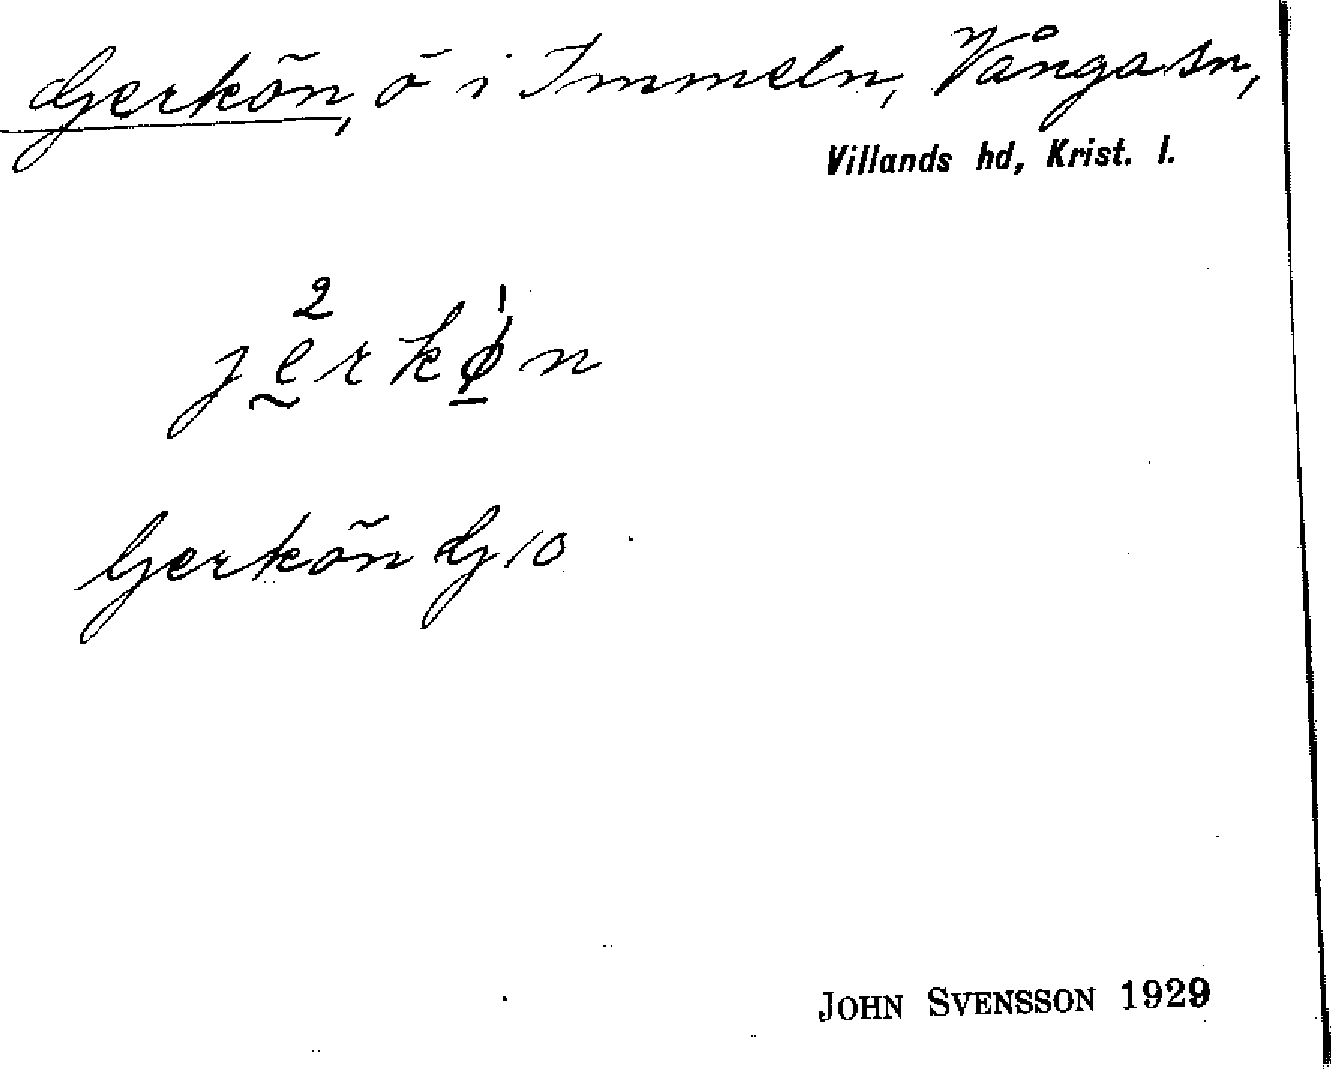 Gerkön, ö i Immeln, Vånga sn,
Villands hd, Krist. l.
2 1
jerkøn
Gerkön G 10
JOHN SVENSSON 1929